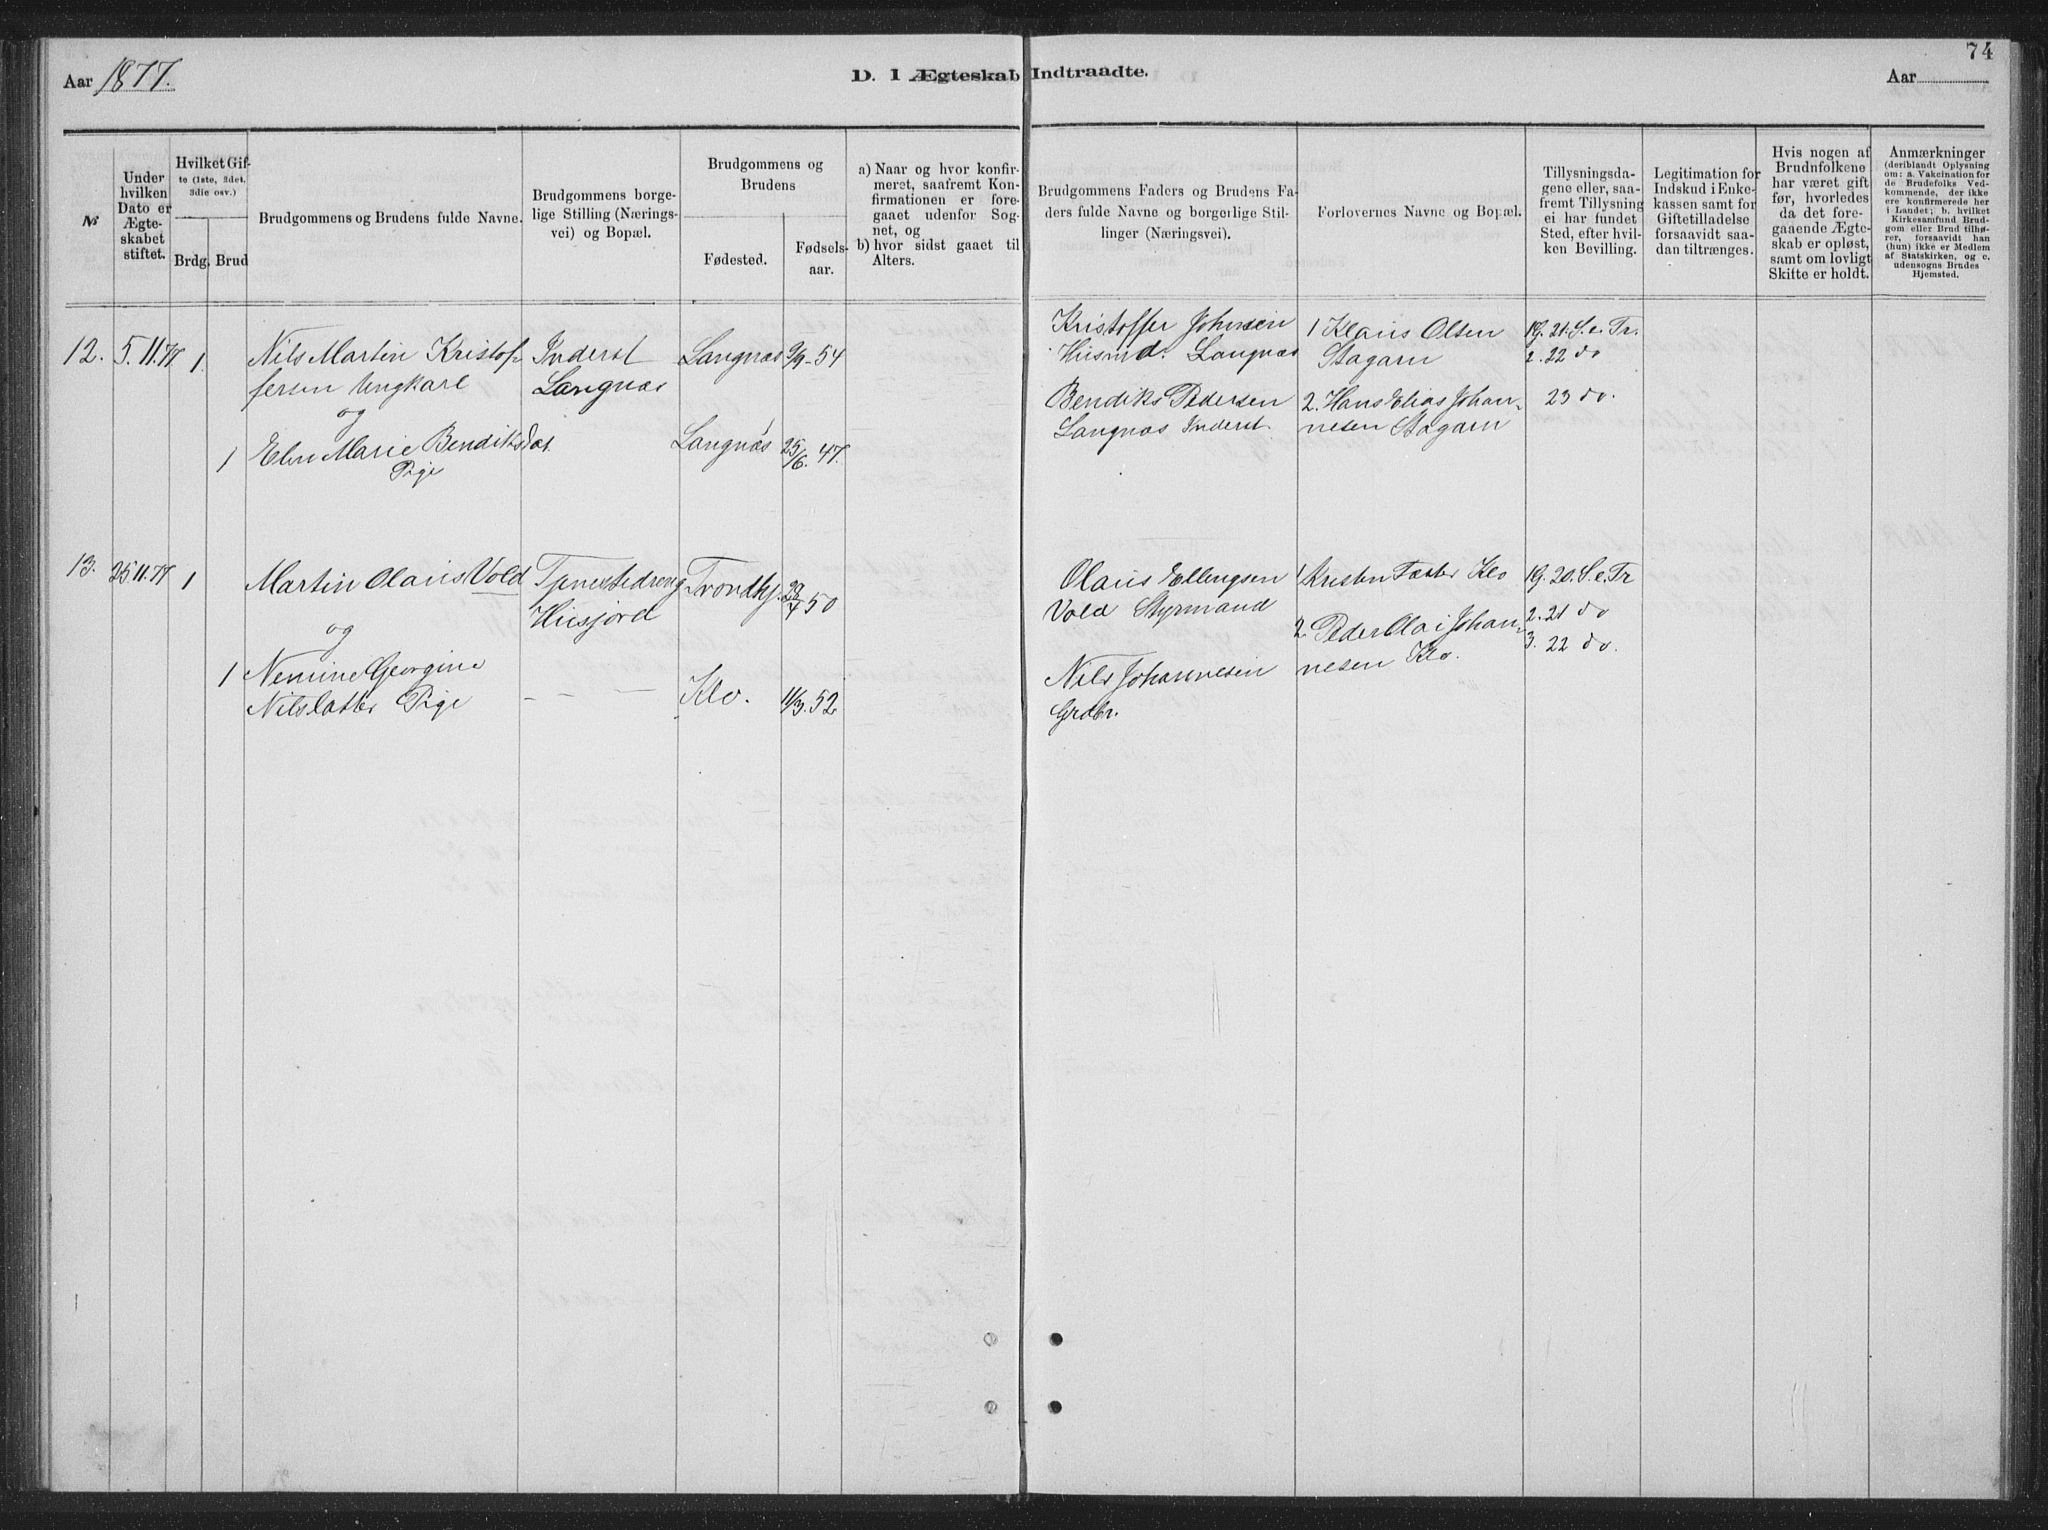 Aar 1877.
D. 1 Ægteskab Indtraadte.
74
Aar
№
Under hvilken Dato er Ægteskabet stiftet.
Hvilket Gifte (1ste, 2det, 3die osv.)
Brdg. Brud
Brudgommens og Brudens fulde Navne.
Brudgommens borgelige Stilling (Næringsvei) og Bopæl.
Brudgommens og Brudens
Fødested.
Fødselsaar.
a) Naar og hvor konfirmeret, saafremt Konfirmationen er foregaaet udenfor Sognet, og
b) hvor sidst gaaet til Alters.
Brudgommens Faders og Brudens Faders fulde Navne og borgerlige Stillinger (Næringsvei).
Forlovernes Navne og Bopæl.
Tillysningsdagene eller, saafremt Tillysning ei har fundet Sted, efter hvilken Bevilling.
Legitimation for Indskud i Enkekassen samt for Giftetilladelse forsaavidt saadan tiltrænges.
Hvis nogen af Brudnfolkene har været gift før, hvorledes da det foregaaende Ægteskab er opløst, samt om lovligt Skifte er holdt.
Anmærkninger
(deriblandt Oplysning om: a. Vakcination for de Brudefolks Vedkommende, der ikke ere konfirmerede her i Landet; b. hvilket Kirkesamfund Brudgom eller Brud tilhører, forsaavidt han (hun) ikke er Medlem af Statskirken, og c. udensogns Brudes Hjemsted.
12. 5.11.77 1. Nils Martin Kristof-
fersen Ungkarl
og
1 Elen Marie Bendiksdat.
Pige
Inderst
Langnæs
Langnæs 9/9-54
Langnæs 25/6. 47.
Kristoffer Johnsen
Husmd. Langnæs
Bendiks Pedersen
Langnæs Inderst.
1 Klaus Olsen
Stagarn
2. Hans Elias Johan-
nesen Stagarn
1g. 21. S. e. Tr.
2. 22 do
23 do.
13. 25.11.77 1 Martin Olaus Vold
og
1 Georgine
Pige
Husjord
– – –
Trondhj. 29/4 50
Klo. 11/3. 52
Olaus Ellingsen
Vold Styrmand
Nils Johannesen
Grdbr.
1 Kristen Klo
2. Peder Johan-
nesen Klo.
1g. 20. S. e. Tr
2. 21 do
3. 22 do.